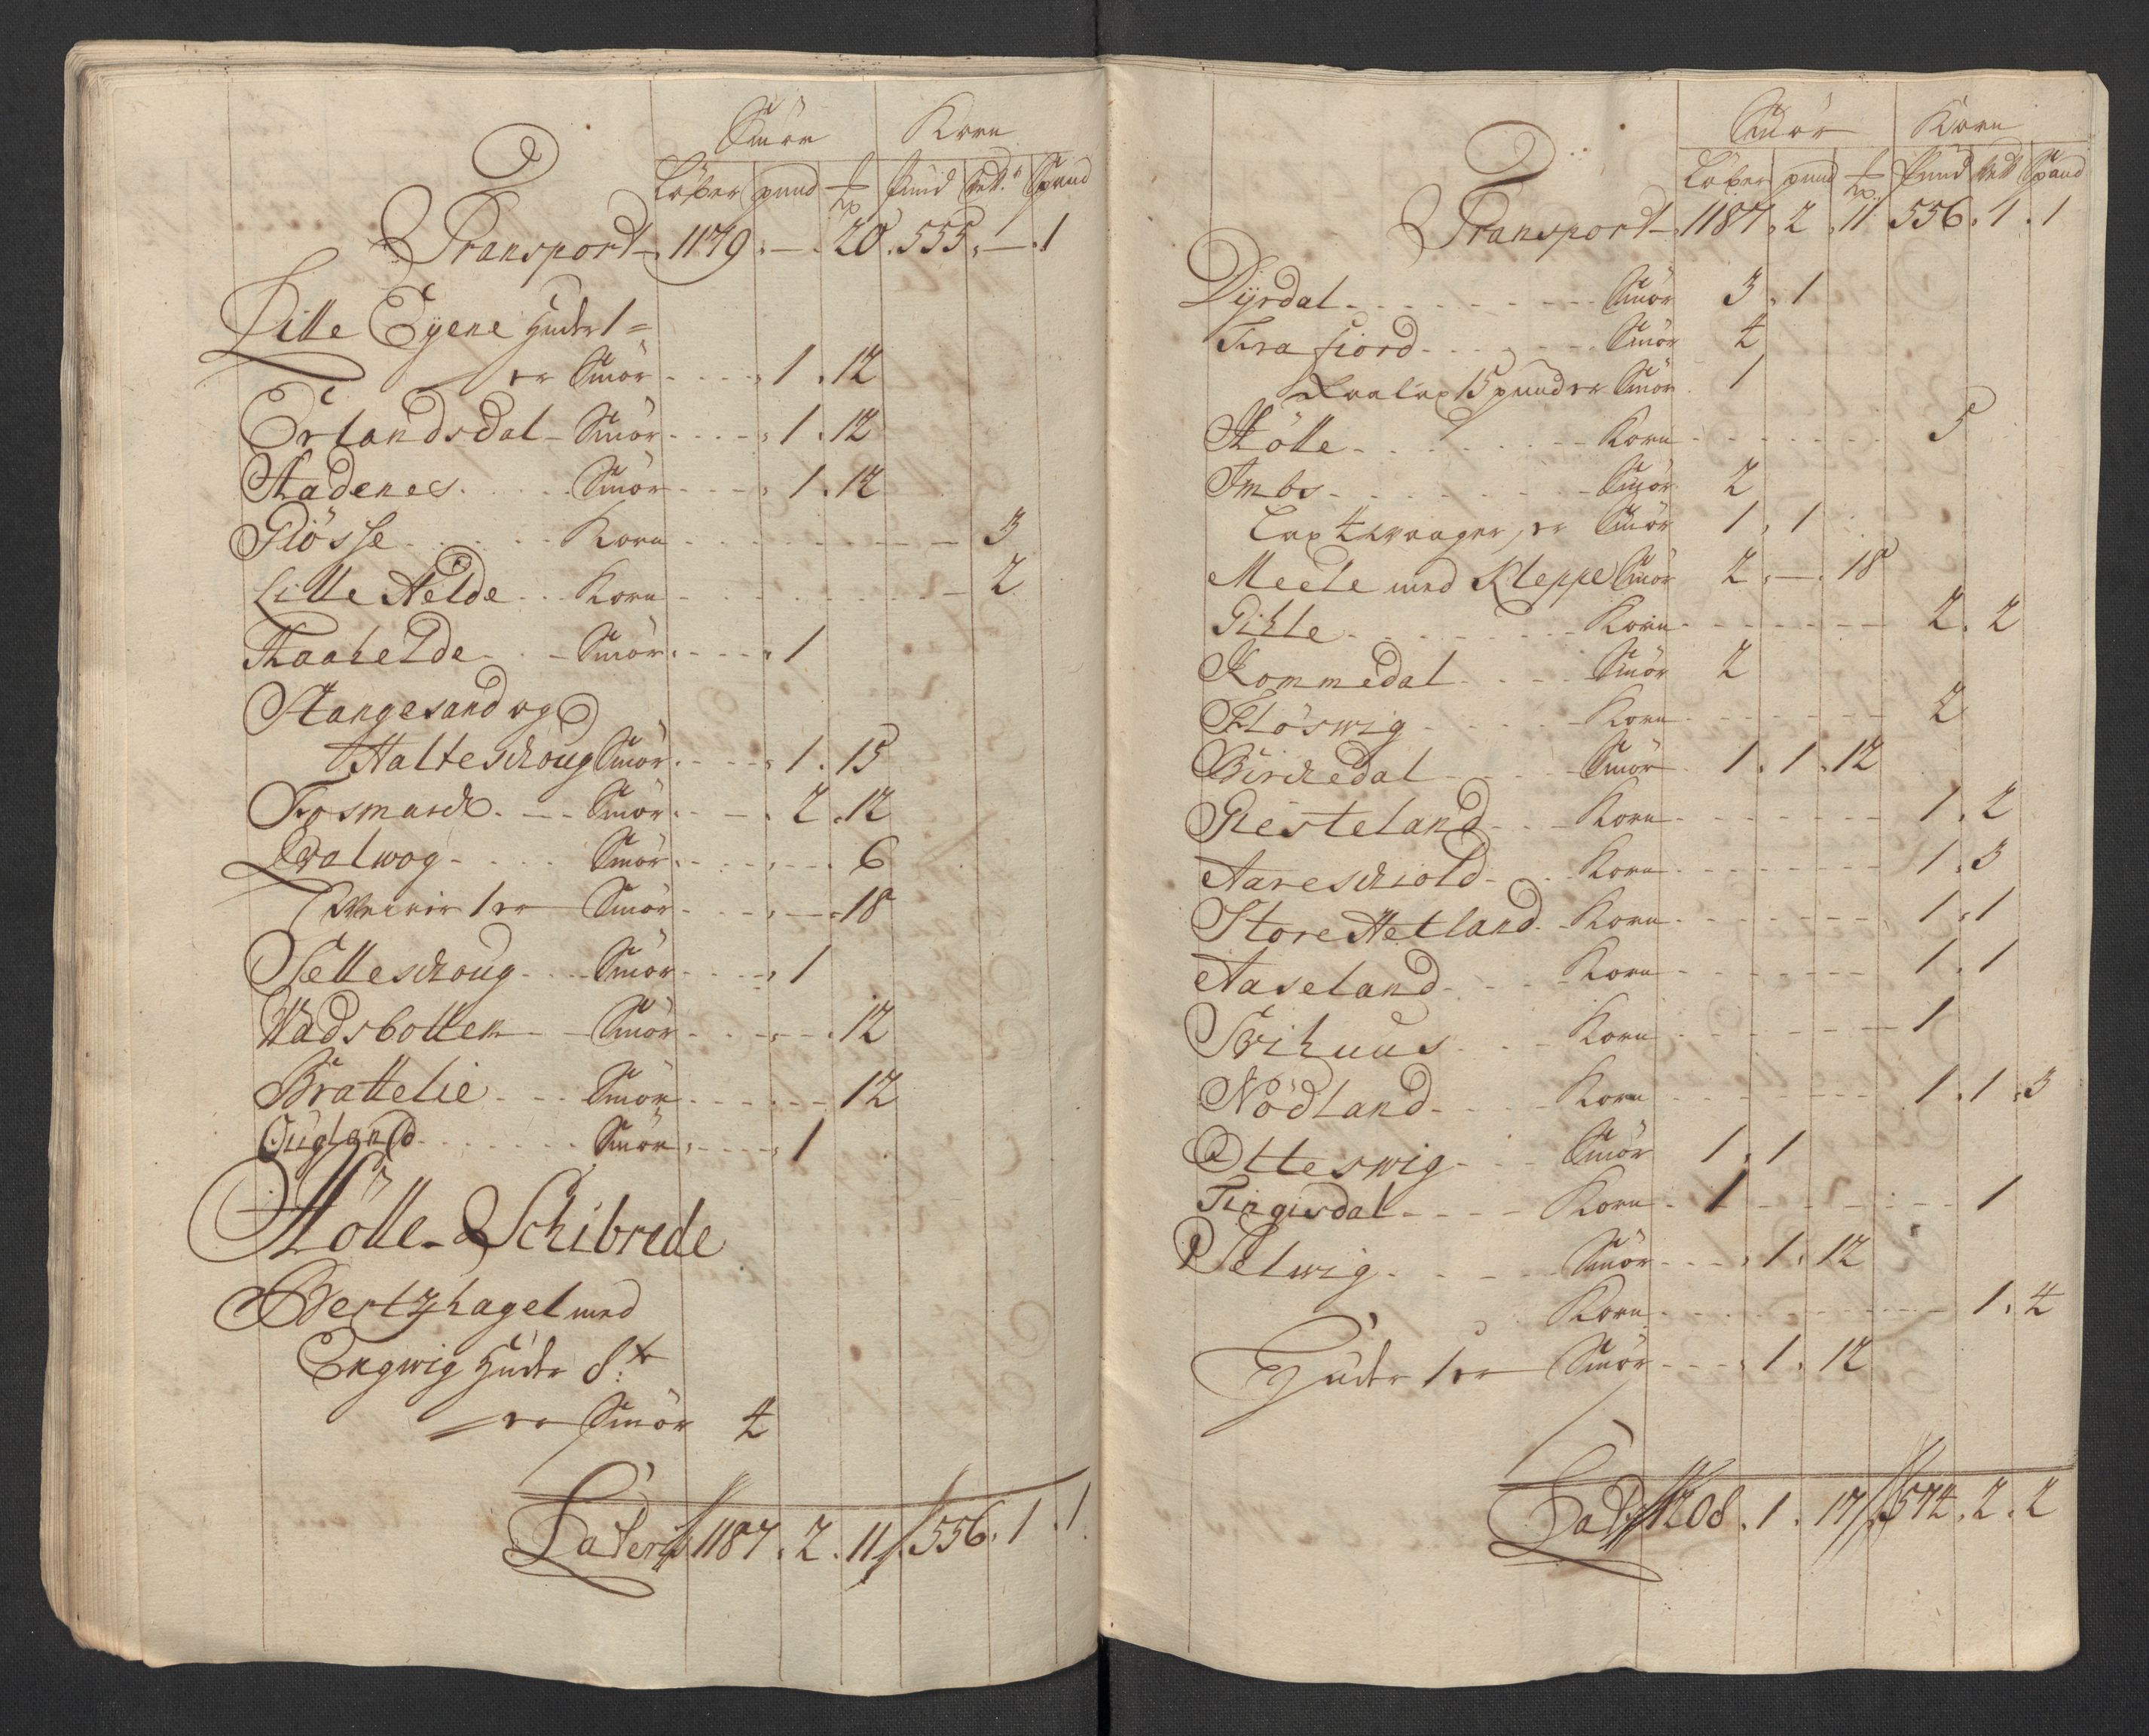 Smör Korn
Löber pund ℔ Pund Vett. Spand
Transport 1179 . — . 20 . 555 . — . 1
Lille Eyene Huder 1 =
er Smör - - - 1 . 12
Erlandsdal - Smör - - - 1 . 12
Stadenes . . . . Smör - - - 1 . 12
Giösse - - - - Korn - - - - - - 3
Lille Helde . . Korn - - - - - - 2
Haahelde - - Smör - - - 1
Stangesand og
Halteschoug Smör - - - 1 . 15
Fosmarck - - - Smör - - - 2 . 12
Qvalwog - - - - Smör - - - - 6
1 er Smör - - - — 18
Selleschoug - - - Smör - - - 1
Wadsbotten - - Smör - - - - 12
Brattelie - - - Smör - - - - 12
Ougland - - - - Smör - - - 1
Hölle - Schibrede
Bertzhagel med
Engwig Huder 8
er Smör 4
Lateris 1187 . 2 . 11 556 . 1 . 1
Smör Korn
Löber pund ℔ Pund Vett Spand
Transport 1187 . 2 . 11 556 . 1 . 1
Dyrdal - - - - - Smör 3 . 1
Frafiord - - - - Smör 4
15 pund er Smör 1
Hölle - - - - - Korn - - - - - 5
Imbs - - - - - Smör 2
Lax 4 waager, er Smör 1 . 1
Meele med Kleppe Smör 2 . — . 18
Gihle - - - - - Korn - - - - 2 . 2
Kommedal - - - - Smör 2
Flöswig - - - - Korn - - - - 2
Birchedal - - - Smör 1 . 1 . 12
Giesteland - - - Korn - - - - 1 . 2
Aareschiold - - Korn - - - - 1 . 3
Store Hetland - Korn - - - - 1 . 1
Aaseland - - - - Korn - - - - 1 . 1
Svihuus - - - Korn - - - - 1
Nödland - - - - Korn - - - - 1 . 1 . 3
Otteswig - - - Smör 1 . 1
Tingisdal - - - - Korn . 1 - - - - - 1
Selwig - - - - Smör - - - 1 . 12
Korn - - - - - - 1 . 4
Huder 1 er Smör - - - 1 . 12
Lats 1208 . 1 . 17 574 . 2 . 2